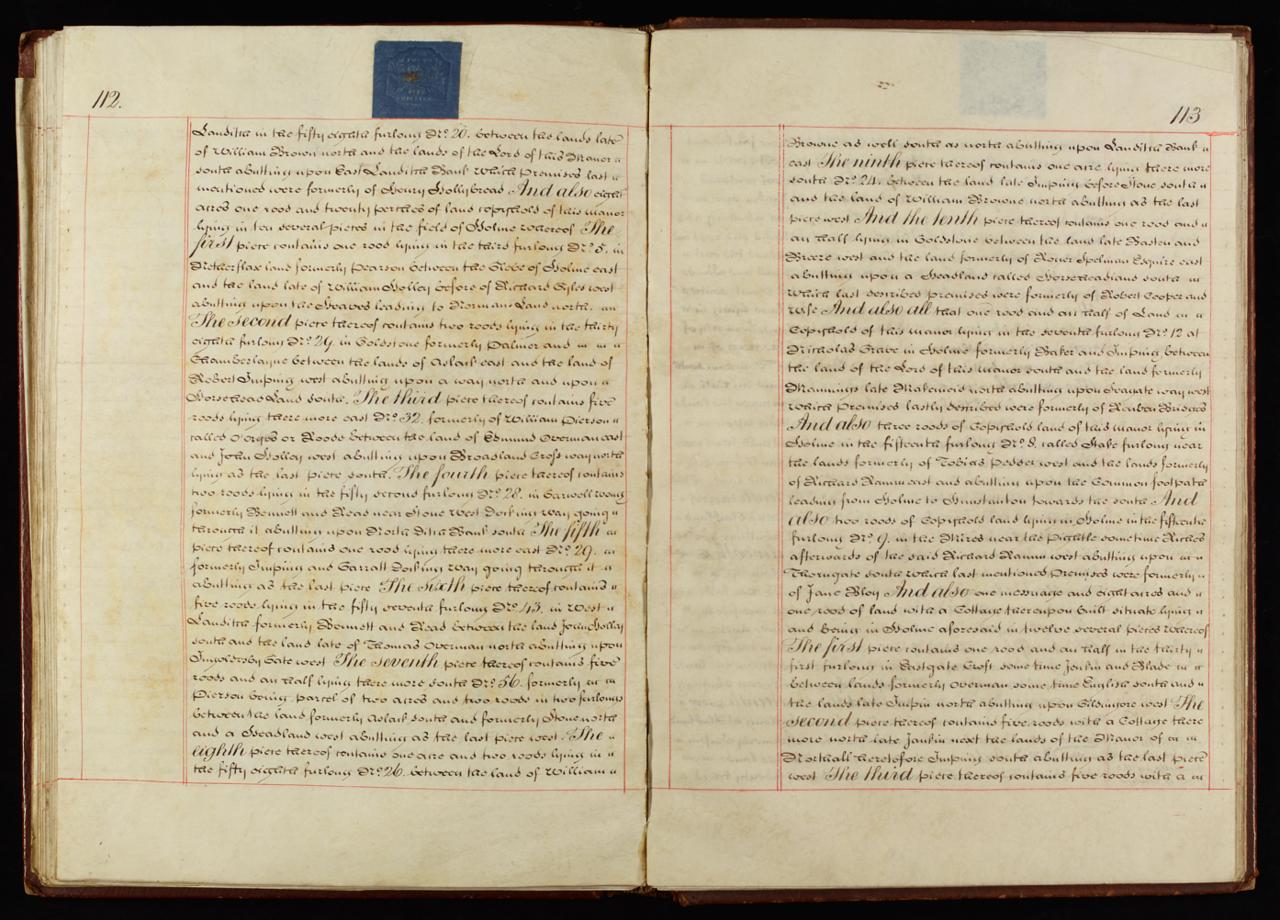 112.
Landitch in the fifty eighth furlong No. 20. between the lands late
of William Brown north and the lands of the Lord of this Manor
south abutting upon East Landitch Bank Which Premises last
mentioned were formerly of Henry Hollybread And also eight
acres one rood and twenty perches of land copyhold of this manor
lying in ten several pieces in the field of Holme whereof The
first piece contains one rood lying in the third furlong No. 5. in
Netherflax land formerly Pearson between the Glebe of Holme east
and the land late of William Holley before of Richard Gyles west
abutting upon the leading to Normans Land north.
The second piece thereof contains two roods lying in the thirty
eighth furlong No. 29. in Goldstone formerly Palmer and
Chamberlayne between the lands of Aslack east and the land of
Robert Imping west abutting upon a way north and upon
Horsehead Land south. The third piece thereof contains five
roods lying there more east No. 32. formerly of William Pierson
called or Roods between the land of Edmund Overman east
and John Holley west abutting upon Broadland Cross way north
lying as the last piece south. The fourth piece thereof contains
two roods lying in the fifty second furlong No. 28. in
formerly Bennett and Read near Stone West Docking way going
through it abutting upon North ditch Bank south The fifth
piece thereof contains one rood lying there more east No. 29.
formerly Imping and Garratt Docking Way going through it
abutting as the last piece The sixth piece thereof contains
five roods lying in the fifty seventh furlong No. 43. in West
Landitch formerly Bennett and Read between the land John Holley
south and the land late of Thomas Overman north abutting upon
Ingoldersby Gate west The seventh piece thereof contains five
roods and an half lying there more south No. 56. formerly
Pierson being parcel of two acres and two roods in two furlongs
between the land formerly Aslack south and formerly Stone north
and a Headland west abutting as the last piece west. The
eighth piece thereof contains one acre and two roods lying in
the fifty eighth furlong No. 26. between the land of William
113
Browne as well south as north abutting upon Landitch Bank
east The ninth piece thereof contains one acre lying there more
south No. 24. between the land late Imping before Stone south
and the land of William Browne north abutting as the last
piece west And the tenth piece thereof contains one rood and
an half lying in Goldstone between the land late Basten and
Breere west and the land formerly of Roger Spelman Esquire east
abutting upon a Headland called south
which last described premises were formerly of Robert Cooper and
wife And also all that one rood and an half of Land
Copyhold of this manor lying in the seventh furlong No. 12 at
Nicholas Grave in Holme formerly Baker and Imping between
the land of the Lord of this manor south and the land formerly
Mannings late Makemaid north abutting upon Seagate way west
Which Premises lastly described were formerly of Reuben Bridges
And also three roods of Copyhold land of this manor lying in
Holme in the fifteenth furlong No. 8. called Stake furlong near
the lands formerly of Tobias Pedder west and the lands formerly
of Richard Ramm east and abutting upon the Common footpath
leading from Holme to Hunstanton towards the south And
also two roods of Copyhold land lying in Holme in the fifteenth
furlong No. 9. in the Mires near the Pightle sometime Riches
afterwards of the said Richard Ramm west abutting upon
Thorngate south which last mentioned Premises were formerly
of Jane Bloy And also one messuage and eight acres and
one rood of land with a Cottage thereupon built situate lying
and being in Holme aforesaid in twelve several pieces whereof
The first piece contains one rood and an half in the thirty
first furlong in Eastgate Croft some time Jenkin and Blade
between lands formerly Overman some time English south and
the lands late Impin north abutting upon west The
second piece thereof contains five roods with a Cottage there
more north late Jankin next the lands of the Manor of
Northall heretofore Imping south abutting as the last piece
west The third piece thereof contains five roods with a